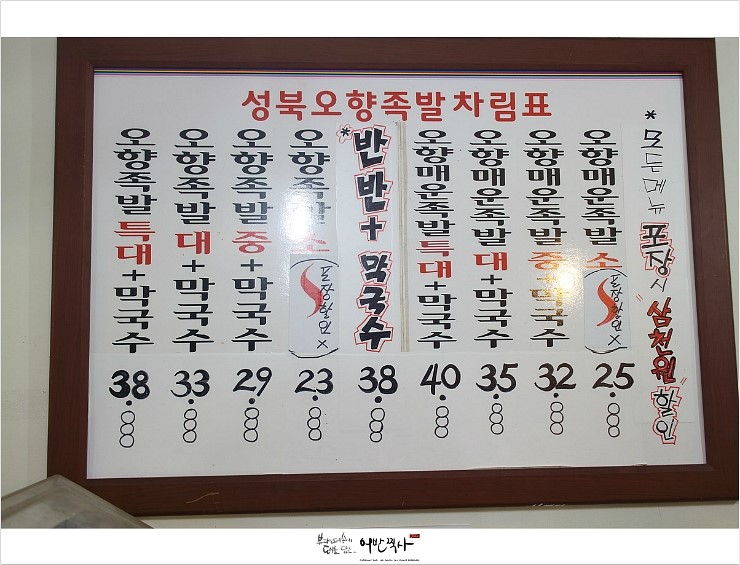 성북오향족발차림표
오향족발특대+막국수
38.000
오향족발대+막국수
33.000
오향족발중+막국수
29.000
오향족발소
포장할인X
23.000
*반반+막국수
38.000
오향매운족발특대+막국수
40.000
오향매운족발대+막국수
35.000
오향매운족발중+막국수
32.000
오향매운족발소
포장할인X
25.000
*모든메뉴 포장시 "삼천원" 할인
어반찍사